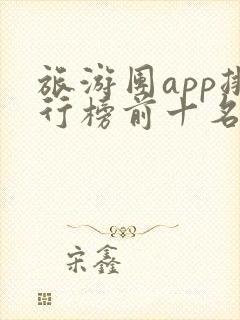 旅游团app排
行榜前十名
宋鑫